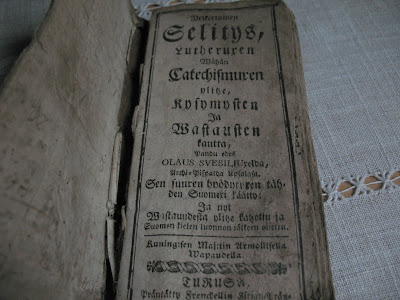 Yxikertainen
Selitys,
Lutheruxen
Wähän
Catechismuxen
ylitze,
Kysymysten
Ja
Wastausten
kautta,
Pandu edes
OLAUS SVEBILIUxelda,
Archi-Pispalda Upsalasa.
Sen suuren hyödytyxen täh-
den Suomexi käätty:
Ja nyt
Wastuudesta ylitze katzottu ja
Suomen kielen luonnon jälkeen
Kuningisen Maj:tin Armollisella
Wapaudella.
TURUSA,
Präntätty Frenckellin